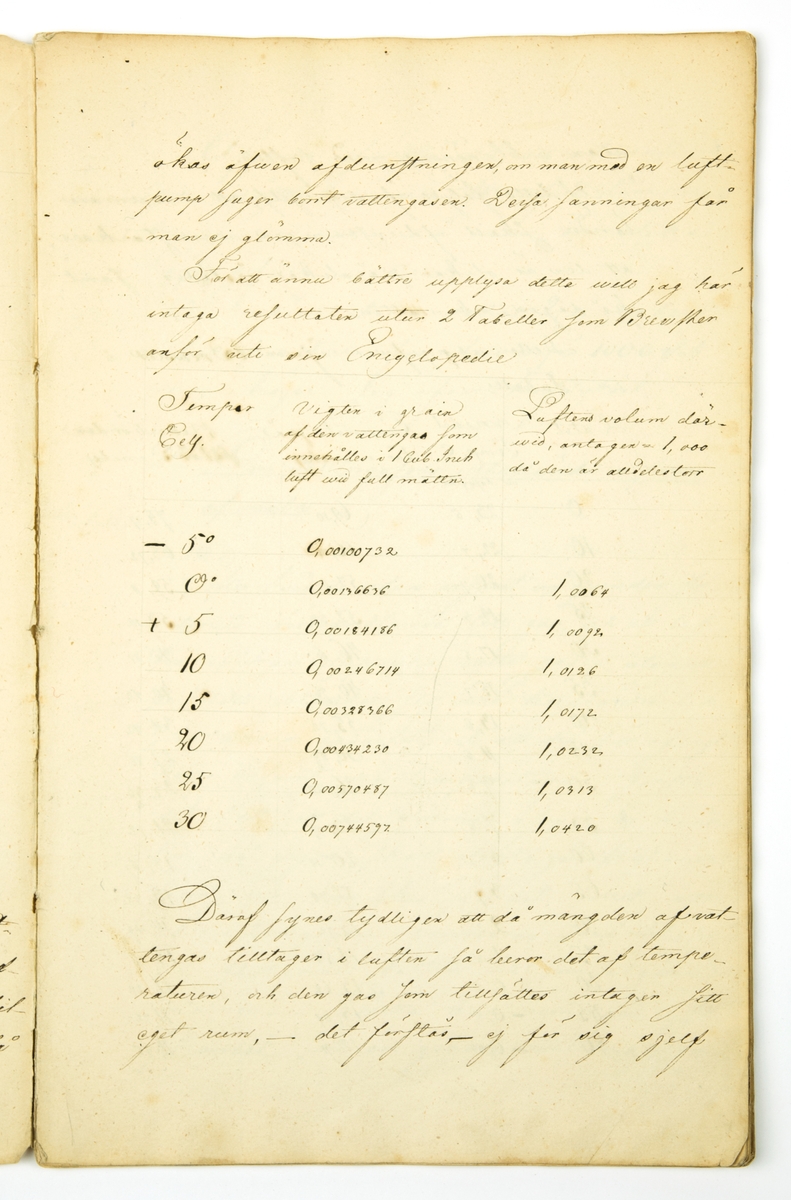 ökas äfwen afdunstningen, om man med en luft-
pump suger bort vattengasen. Dessa sanningar får
man ej glömma.
För att ännu bättre upplysa detta will jag här
intaga resultaten utur 2 Tabeller som Brewster
anför uti sin Encyclopedie
Temper Vigten i grain Luftens volum där-
Cels. af den vattengas som wid, antagen = 1,000
innehålles i 1 Cub. Inch då den är alldeles torr
luft wid full mättn.
— 5° 0,00100732
0° 0,00136636 1,0064
+ 5 0,00184186 1,0092
10 0,00246714 1,0126
15 0,00328366 1,0172
20 0,00434230 1,0232
25 0,00570487 1,0313
30 0,00744592 1,0420
Däraf synes tydligen att då mängden af vat-
tengas tilltager i luften så beror det af tempe-
raturen, och den gas som tillsättes intager sitt
eget rum, — det förstås, — ej för sig sjelf